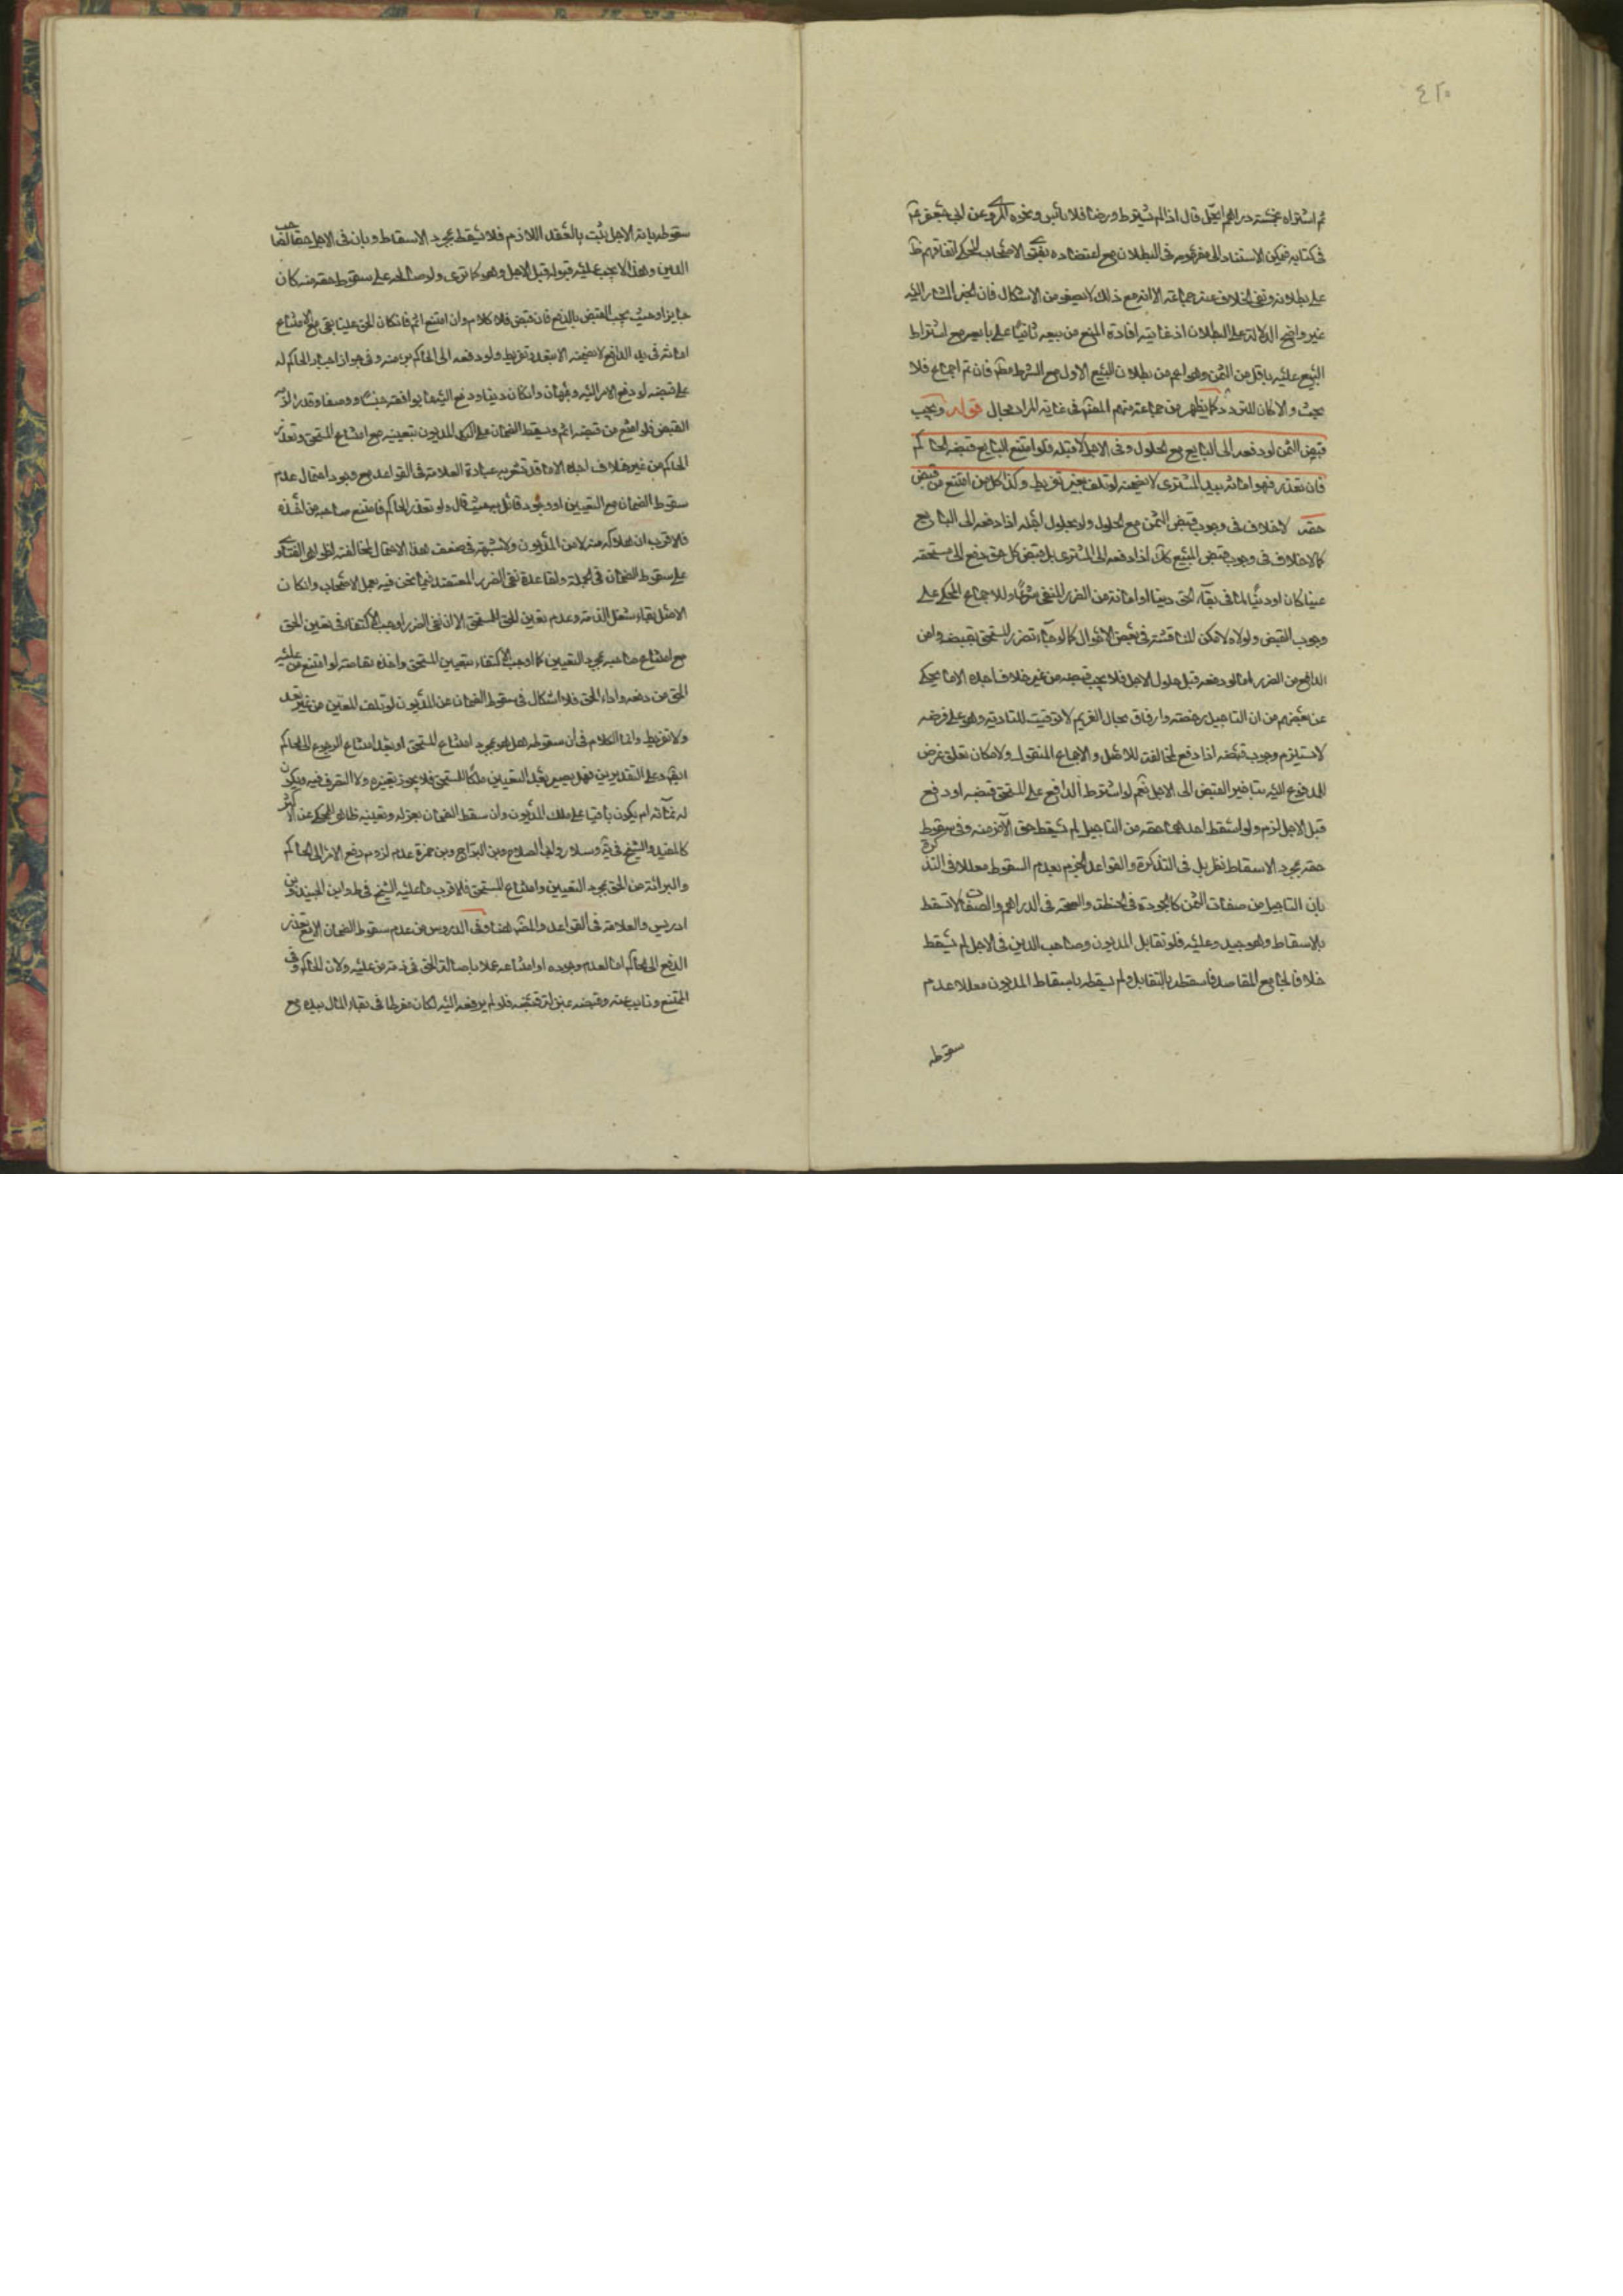 ٤٢٠
ثم اشتراه بخمسة دراهم ايحل قال اذا لم يشترط ورضيا فلا باس ونحوه المروى عن
في كتابه فيمكن الاستناد الى مفهومه في البطلان مع اعتضاده بفتوى الاصحاب
على بطلانه ونفى الخلاف عنه جماعة الا انه مع ذلك لا يصفو من الاشكال فان الخبر المشار اليه
غير واضح الدلالة على البطلان اذ غايته افادة المنع من بيعه ثانيا على بايعه مع اشتراط
البيع عليه باقل من الثمن وهو اعم من بطلان البيع الاول مع الشرط فان تم اجماع فلا
بحث والا كان للتردد كما يظهر من جماعة منهم في غاية المراد مجال قوله ويجب
قبض الثمن لو دفعه الى البايع مع الحلول وفى الاجل لا قبله فلو امتنع البايع قبضه الحاكم
فان تعذر فهو امانة بيد المشترى لا يضمنه لو تلف بغير تفريط وكذا كل من امتنع من قبض
حقه لا خلاف في وجوب قبض الثمن مع الحلول ولو بحلول اجله اذا دفعه الى البايع
كما لا خلاف في وجوب قبض المبيع اذا دفعه الى المشترى بل قبض كل حق دفع الى مستحقه
عينا كان او دينا لما في بقاء الحق دينا او امانة من الضرر المنفى شرعا وللاجماع المحكى على
وجوب القبض ولولاه لامكن المناقشة في بعض الاحوال كما لو جاء تضرر المستحق بقبضه وامن
الدافع من الضرر اما لو دفعه قبل حلول الاجل فلا يجب قبضه من غير خلاف اجده الا ما يحكى
عن بعضهم من ان التاجيل رخصة وارفاق بحال الغريم لا توقيت للتادية وهو على فرضه
لا يستلزم وجوب قبضه اذا دفع لمخالفته للاصل والاجماع المنقول ولامكان تعلق غرض
المدفوع اليه بتاخير القبض الى الاجل نعم لو اشترط الدافع على المستحق قبضه لو دفع
قبل الاجل لزم ولو اسقط احدهما حقه من التاجيل لم يسقط حق الآخر منه وفى سقوط
حقه بمجرد الاسقاط نظر بل في التذكرة والقواعد الجزم بعدم السقوط معللا في التذكرة
بان التاجيل من صفات الثمن كالجودة في الحنطة والصحة في الدراهم والصفات لا تسقط
بالاسقاط وهو جيد وعليه فلو تقابل المديون وصاحب الدين في الاجل لم يسقط
خلافا لجامع المقاصد فاسقطه بالتقابل ولم يسقطه باسقاط المديون معللا عدم
سقوطه
سقوطه بانه الاجل يثبت بالعقد اللازم فلا يسقط بمجرد الاسقاط وبان في الاجل حقا لصاحب
الدين ولهذا لا يجب عليه قبوله قبل الاجل وهو كما ترى ولو صالحه على سقوط حقه منه كان
جايزا وحيث يجب القبض بالدفع فان قبض فلا كلام وان امتنع اثم فان كان الحق عينا بقى مع الامتناع
امانة في يد الدافع لا يضمنه الا بتعد وتفريط ولو دفعه الى الحاكم برء منه وفى جواز اجبار الحاكم له
على قبضه لو دفع الامر اليه وجهان وان كان دينا ودفع اليه ما يوافقه جنسا ووصفا وقدرا
القبض فلو امتنع من قبضه اثم وسقط الضمان على المديون بتعيينه مع امتناع المستحق وتعذر
الحاكم من غير خلاف اجده الا ما قد تشعر به عبارة العلامة في القواعد مع وجود احتمال عدم
سقوط الضمان مع التعيين او وجود قائل به حيث قال ولو تعذر الحاكم فامتنع صاحبه من اخذه
فالاقرب ان هلاكه منه لا من المديون ولا شبهة في ضعف هذا الاحتمال لمخالفته لظواهر الفتاوى
على سقوط الضمان في الجملة ولقاعدة نفى الضرر المعتضد فيما نحن فيه بعمل الاصحاب وان كان
الاصل بقاء شغل الذمة وعدم تعين الحق للمستحق الا ان نفى الضرر اوجب الاكتفاء في تعين الحق
مع امتناع صاحبه بمجرد التعيين كما اوجب الاكتفاء بتعيين المستحق واخذه مقاصة لو امتنع من عليه
الحق من دفعه واداء الحق فلا اشكال في سقوط الضمان عن المديون لو تلف المتعين من غير تعد
ولا تفريط وانما الكلام في ان سقوطه هل هو بمجرد امتناع المستحق او بعد امتناع الرجوع الى الحاكم
وعلى التقديرين فهل يصير بعد التعيين ملكا للمستحق فلا يجوز تغييره ولا التصرف فيه ويكون
له نمائه ام يكون باقيا على ملك المديون وان سقط الضمان بعزله وتعيينه ظاهر المحكى عن الاكثر
كالمفيد والشيخ في يه وسلار وابى الصلاح وبن البراج وبن حمزة عدم لزوم دفع الامر الى الحاكم
والبرائة من الحق بمجرد التعيين وامتناع المستحق فالاقرب ما عليه الشيخ في ط وابن الجنيد وبن
ادريس والعلامة في القواعد والمصنف هنا وفى الدروس من عدم سقوط الضمان الا مع تعذر
الدفع الى الحاكم اما لعدم وجوده او امتناعه عملا باصالة الحق في ذمة من عليه ولان الحاكم
الممتنع ونايب عنه وقبضه بمنزلة قبضه فلو لم يدفعه اليه لكان مفرطا في بقاء المال بيده مع